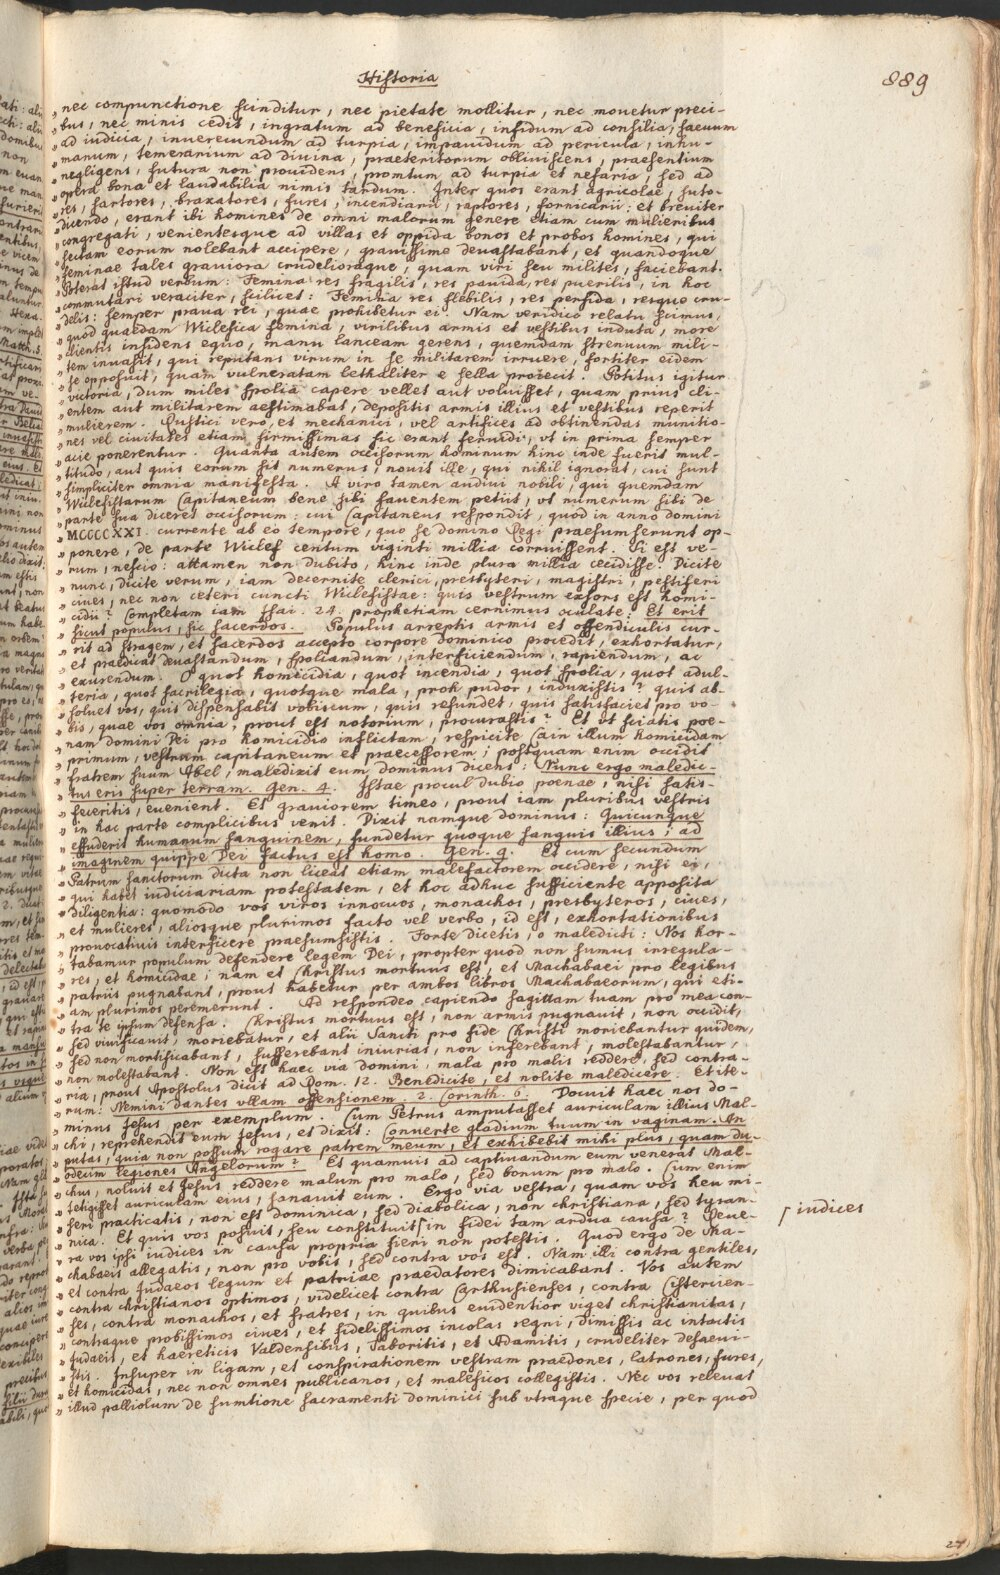 Historia
889
„ nec compunctione scinditur, nec pietate mollitur, nec mouetur preci-
„ bus, nec minis cedit, ingratum ad beneficia, infidum ad consilia, saeuum
„ ad iudicia, inuerecundum ad turpia, impauidum ad pericula, inhu-
„ manum, temerarium ad diuina, praeteritorum obliuiscens, praesentium
„ negligens, futura non prouidens, promtum ad turpia et nefaria, sed ad
„ opera bona et laudabilia nimis tardum. Inter quos erant agricolae, suto-
„ res, sartores, braxatores, fures, incendiarii, raptores, fornicarii: et breuiter
„ dicendo, erant ibi homines de omni malorum genere etiam cum mulieribus
„ congregati, venientesque ad villas et oppida bonos et probos homines, qui
„ sectam eorum nolebant accipere, grauissime deuastabant, et quandoque
„ feminae tales grauiora crudelioraque, quam viri seu milites, faciebant.
„ Poterat istud verbum: Femina res fragilis, res pauida, res puerilis, in hoc
„ commutari veraciter, scilicet: Femina res flebilis, res perfida, resque cru-
„ delis: semper praua rei, quae prohibetur ei. Nam veridico relatu scimus,
„ quod quaedam Wiclefica femina, virilibus armis et vestibus induta, more
„ clientis insidens equo, manu lanceam gerens, quemdam strenuum mili-
„ tem inuasit, qui reputans virum in se militarem irruere, fortiter eidem
„ se opposuit, quam vulneratam lethaliter e sella proiecit. Potitus igitur
„ victoria, dum miles spolia capere vellet aut voluisset, quam prius cli-
„ entem aut militarem aestimabat, depositis armis illius et vestibus reperit
„ mulierem. Rustici vero, et mechanici, vel artifices ad obtinendas munitio-
„ nes vel ciuitates etiam firmissimas sic erant feruidi, vt in prima semper
„ acie ponerentur. Quanta autem occisorum hominum hinc inde fuerit mul-
„ titudo, aut quis eorum sit numerus, nouit ille, qui nihil ignorat, cui sunt
„ simpliciter omnia manifesta. A viro tamen audiui nobili, qui quemdam
„ Wiclefistarum Capitaneum bene sibi fauentem petiit, vt numerum sibi de
„ parte sua diceret occisorum: cui Capitaneus respondit, quod in anno domini
„ MCCCCXXI. currente ab eo tempore, quo se domino Regi praesumserunt op-
„ ponere, de parte Wiclef centum viginti millia corruissent. Si est ve-
„ rum, nescio: attamen non dubito, hinc inde plura millia cecidisse. Dicite
„ nunc, dicite verum, iam decernite clerici, presbyteri, magistri, pestiferi
„ ciues, nec non ceteri cuncti Wiclefistae: quis vestrum exsors est homi-
„ cidii? Completam iam Isai. 24. prophetiam cernimus oculate. Et erit
„ sicut populus, sic sacerdos. Populus arreptis armis et offendiculis cur-
„ rit ad stragem, et sacerdos accepto corpore dominico procedit, exhortatur,
„ et praedicat deuastandum, spoliandum, interficiendum, rapiendum, ac
„ exurendum. O quot homicidia, quot incendia, quot spolia, quot adul-
„ teria, quot sacrilegia, quotque mala, proh pudor, induxistis? quis ab-
„ soluet vos, quis dispensabit vobiscum, quis refundet, quis satisfaciet pro vo-
„ bis, quae vos omnia, prout est notorium, procurastis? Et vt sciatis poe-
„ nam domini Dei pro homicidio inflictam, respicite Cain illum homicidam
„ primum, vestrum capitaneum et praecessorem; postquam enim occidit
„ fratrem suum Abel, maledixit eum dominus dicens: Nunc ergo maledic-
„ tus eris super terram. Gen. 4. Istae procul dubio poenae, nisi satis-
„ feceritis, euenient. Et grauiorem timeo, prout iam pluribus vestris
„ in hac parte complicibus venit. Dixit namque dominus: Quicunque
„ effuderit humanum sanguinem, fundetur quoque sanguis illius; ad
„ imaginem quippe Dei factus est homo. Gen. 9. Et cum secundum
„ Patrum sanctorum dicta non liceat etiam malefactorem occidere, nisi ei,
„ qui habet iudiciariam potestatem, et hoc adhuc sufficiente apposita
„ diligentia: quomodo vos viros innocuos, monachos, presbyteros, ciues,
„ et mulieres, aliosque plurimos facto vel verbo, id est, exhortationibus
„ prouocatiuis interficere praesumsistis. Forte dicetis, o maledicti: Nos hor-
„ tabamur populum defendere legem Dei, propter quod non sumus irregula-
„ res, et homicidae; nam et Christus mortuus est, et Machabaei pro legibus
„ patriis pugnabant, prout habetur per ambos libros Machabaeorum, qui eti-
„ am plurimos peremerunt. Ad respondeo capiendo sagittam tuam pro mea con-
„ tra te ipsum defensa. Christus mortuus est, non armis pugnauit, non occidit,
„ sed viuificauit, moriebatur, et alii Sancti pro fide Christi moriebantur quidem,
„ sed non mortificabant, sufferebant iniurias, non inferebant, molestabantur,
„ non molestabant. Non est haec via domini, mala pro malis reddere, sed contra-
„ ria, prout Apostolus dicit ad Rom. 12. Benedicite, et nolite maledicere. Et ite-
„ rum: Nemini dantes vllam offensionem. 2. Corinth. 6. Docuit haec nos do-
„ minus Jesus, per exemplum. Cum Petrus amputasset auriculam illius Mal-
„ chi, reprehendit eum Jesus, et dixit: Conuerte gladium tuum in vaginam. An
„ putas, quia non possum rogare patrem meum, et exhibebit mihi plus, quam du-
„ odecim legiones Angelorum? Et quamuis ad captiuandum eum venerat Mal-
„ chus, noluit et Jesus reddere malum pro malo, sed bonum pro malo. Cum enim
„ tetigisset auriculam eius, sanauit eum. Ergo via vestra, quam vos heu mi-
„ seri practicatis, non est dominica, sed diabolica, non christiana, sed tyran-
„ nica. Et quis vos posuit, seu constituit ⌈ in fidei tam ardua causa? Reue-
⌈ iudices
„ ra vos ipsi iudices in causa propria fieri non potestis. Quod ergo de Ma-
„ chabaeis allegatis, non pro vobis, sed contra vos est. Nam illi contra gentiles,
„ et contra Judaeos legum et patriae praedatores dimicabant. Vos autem
„ contra christianos optimos, videlicet contra Carthusienses, contra Cistercien-
„ ses, contra monachos, et fratres, in quibus euidentior viget christianitas,
„ contraque probissimos ciues, et fidelissimos incolas regni, dimissis ac intactis
„ Judaeis, et haereticis Valdensibus, Taboritis, et Adamitis, crudeliter desaeui-
„ stis. Insuper in ligam, et conspirationem vestram praedones, latrones, fures,
„ et homicidas, nec non omnes publicanos, et maleficos collegistis. Nec vos releuat
„ illud palliolum de sumtione sacramenti dominici sub vtraque specie, per quod